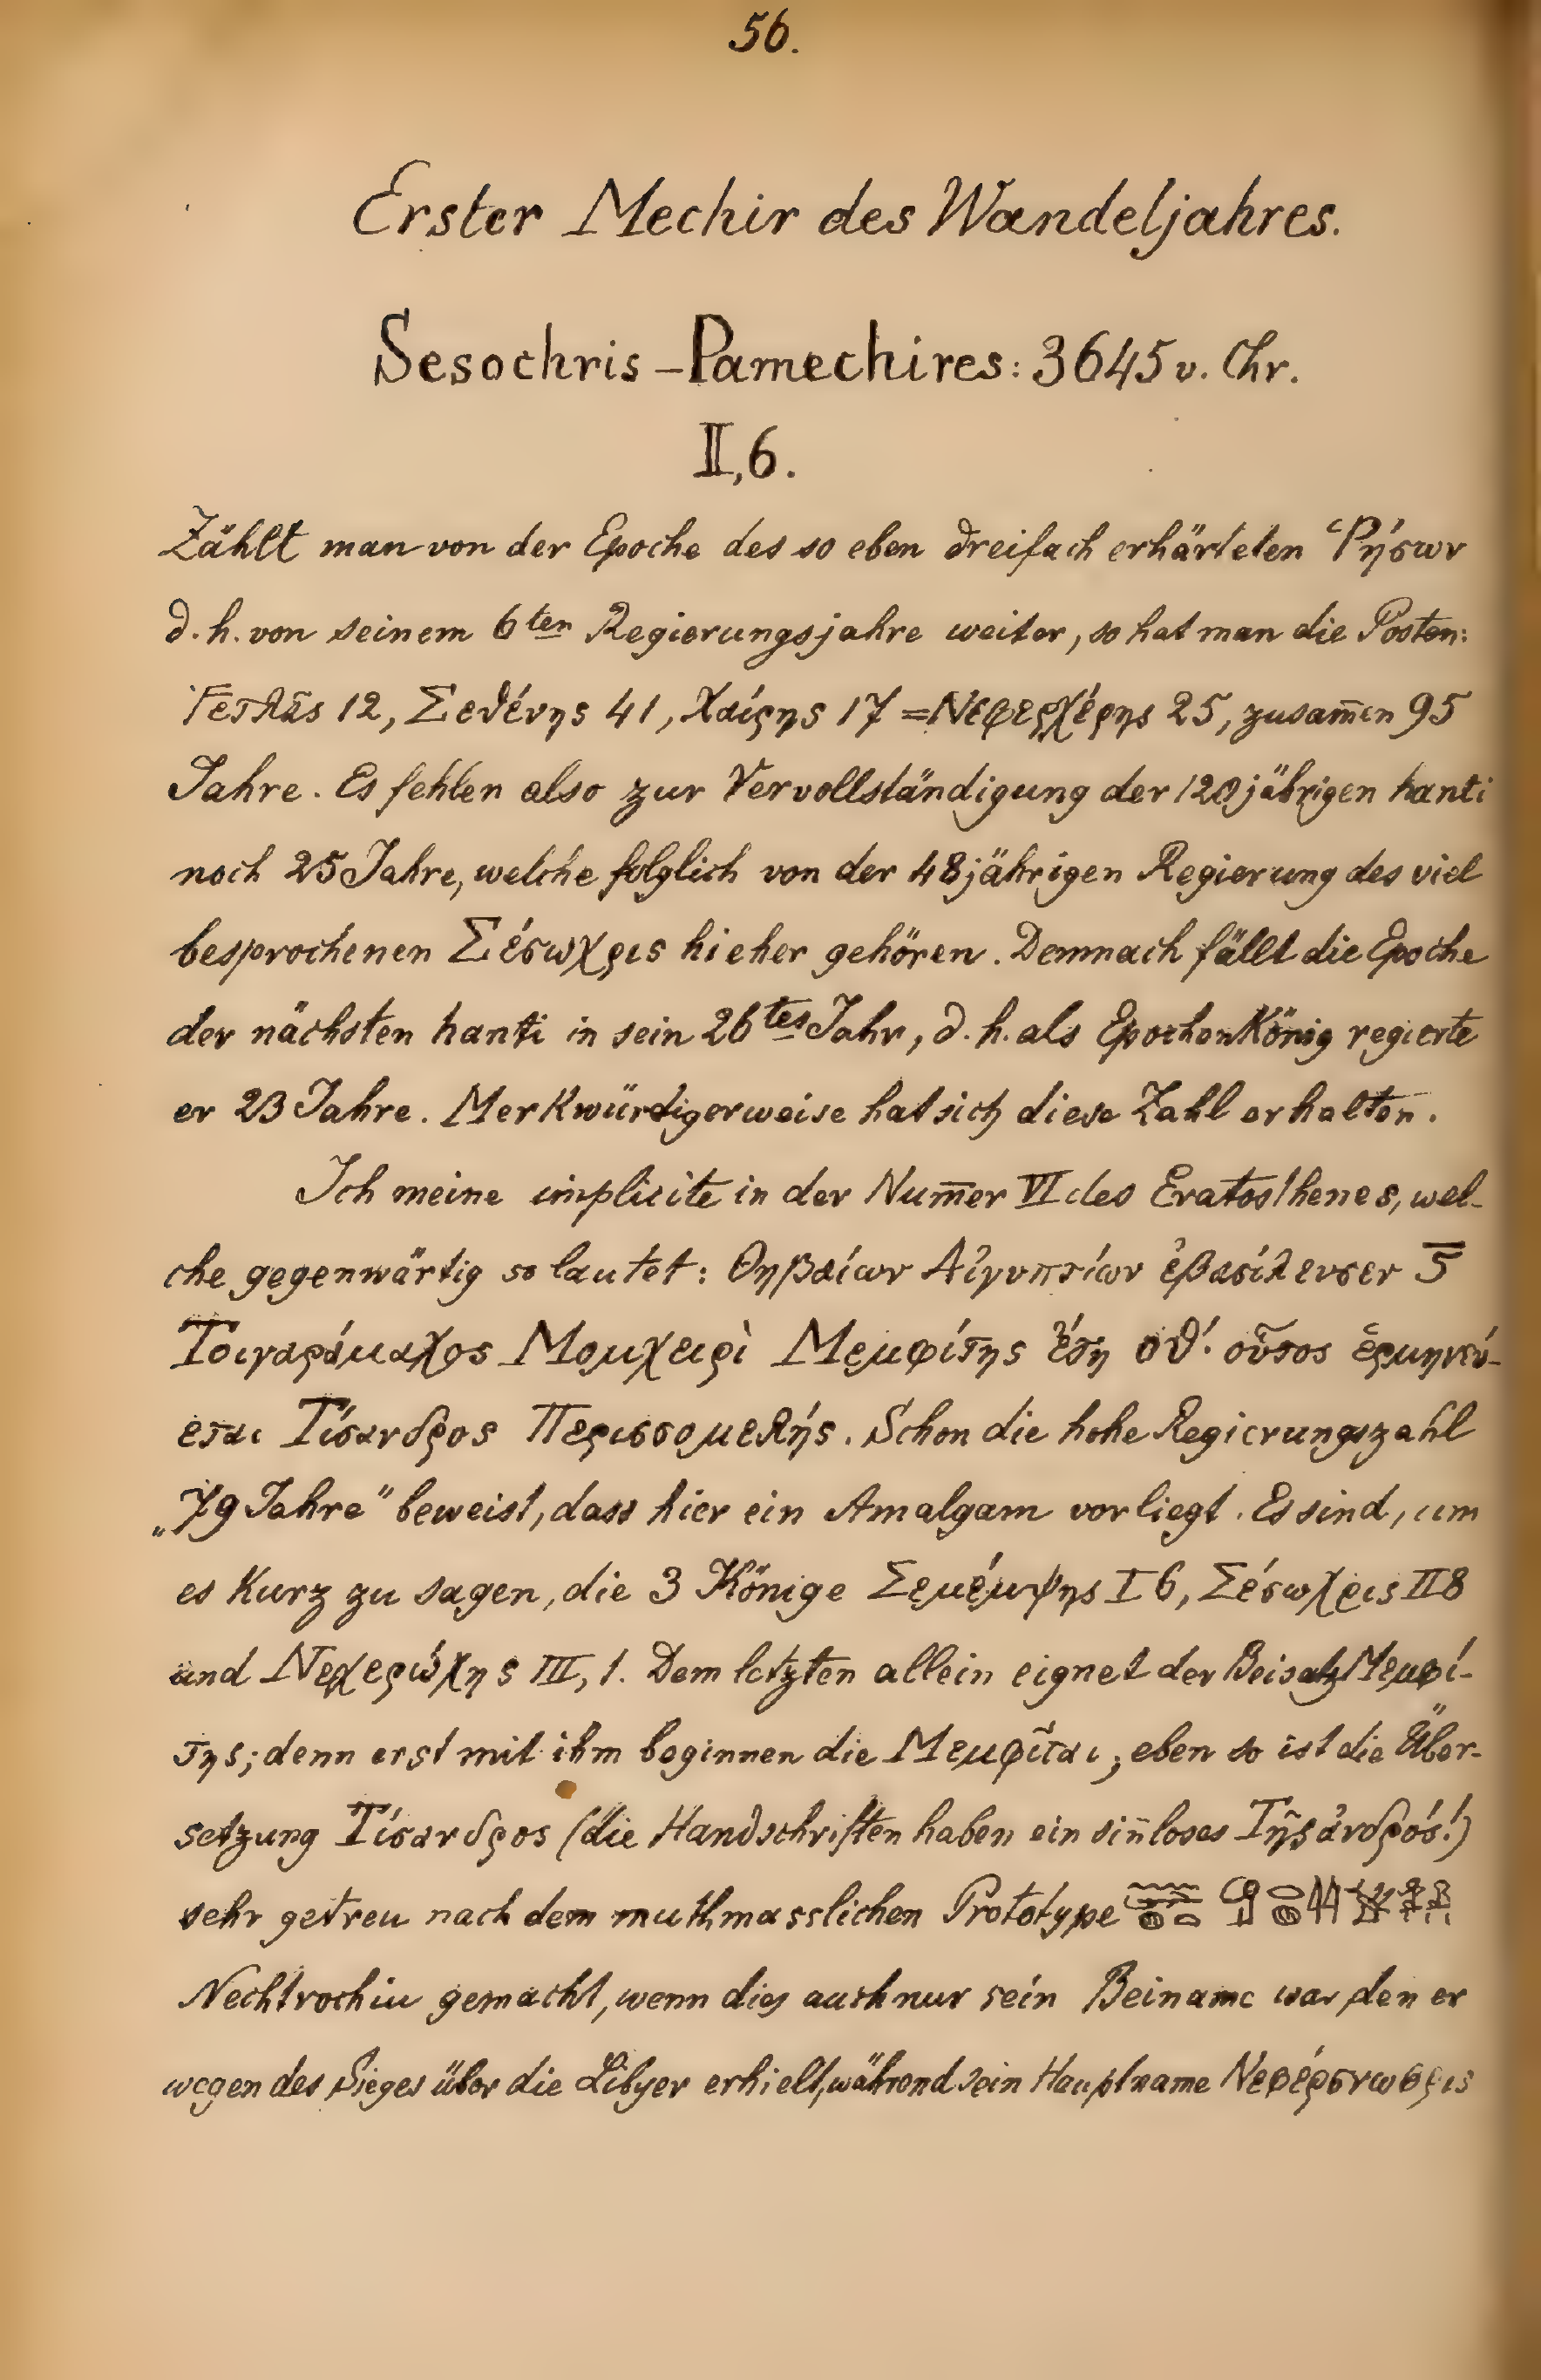 56.
Erster Mechir des Wandeljahres.
Sesochris-Pamechires: 3645 v. Chr.
II,6.
Zählt man von der Epoche des so eben dreifach erhärteten Ῥήσων
d. h. von seinem 6ten Regierungsjahre weiter, so hat man die Posten:
12, Σεθένης 41, Χαίρης 17 = Νεφερχέρης 25, zusam̄en 95
Jahre. Es fehlen also zur Vervollständigung der 120jährigen hanti
noch 25 Jahre, welche folglich von der 48jährigen Regierung des viel
besprochenen Σέσωχρις hieher gehören. Demnach fällt die Epoche
der nächsten hanti in sein 26tes Jahr, d. h. als Epochenkönig regierte
er 23 Jahre. Merkwürdigerweise hat sich diese Zahl erhalten.
Ich meine implicite in der Num̄er VI des Eratosthenes, wel-
che gegenwärtig so lautet: Θηβαίων Αἰγυπτίων ἐβασίλευσεν ϛ̄
Τοιγαράμαχος Μομχειρὶ Μεμφίτης ἔτη οθ΄. οὗτος ἑρμηνεύ-
εται Τίσανδρος Περισσομελής. Schon die hohe Regierungszahl
„79 Jahre" beweist, dass hier ein Amalgam vorliegt. Es sind, um
es kurz zu sagen, die 3 Könige Σεμέμψης I 6, Σέσωχρις II 8
und Νεχερώχης III, 1. Dem letzten allein eignet der Beisatz Μεμφί-
της; denn erst mit ihm beginnen die Μεμφῖται; eben so ist die Über-
setzung Τίσανδρος (die Handschriften haben ein sin̄loses Τῆς ἀνδρός!)
sehr getreu nach dem muthmasslichen Prototype
Nechtrochiu gemacht, wenn dies auch nur sein Beiname war den er
wegen des Sieges über die Libyer erhielt, während sein Hauptname